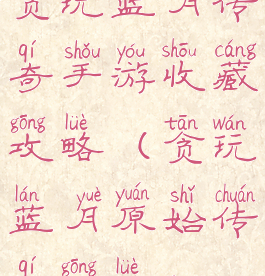 贪玩蓝月传
qí shǒu yóu shōu cáng
奇手游收藏
gōng lüè tān wán
攻略（贪玩
lán yuè yuán shǐ chuán
蓝月原始传
qí gōng lüè